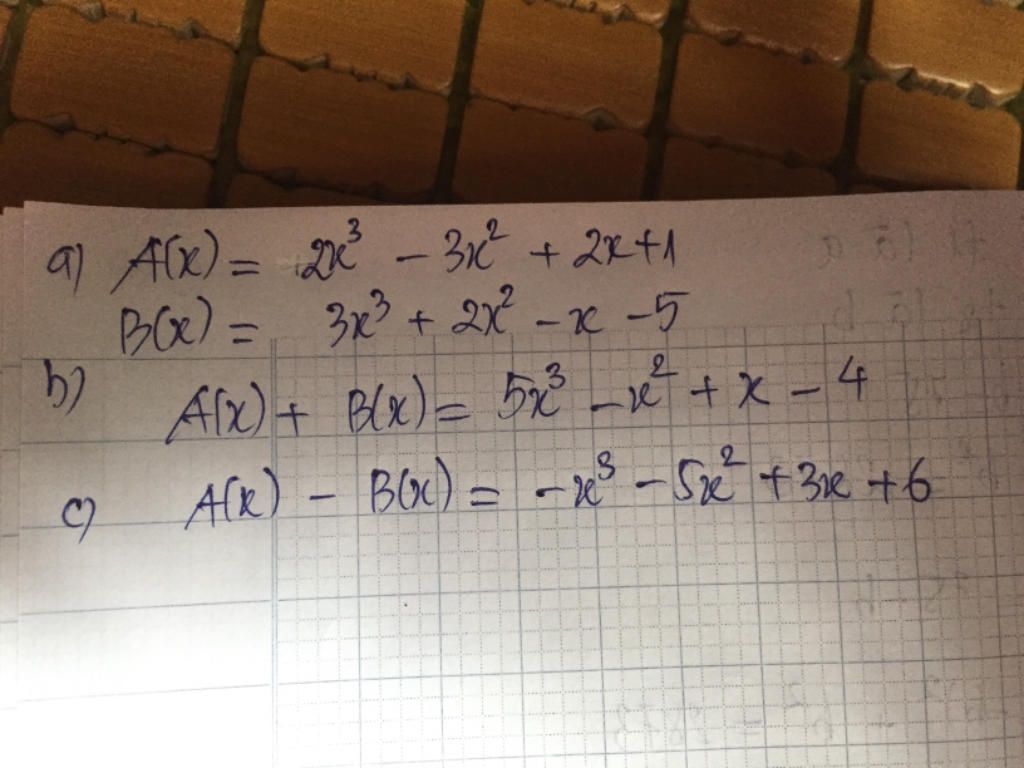 a) A(x) = 2x³ - 3x² + 2x + 1
B(x) = 3x³ + 2x² - x - 5
b) A(x) + B(x) = 5x³ - x² + x - 4
c) A(x) - B(x) = -x³ - 5x² + 3x + 6